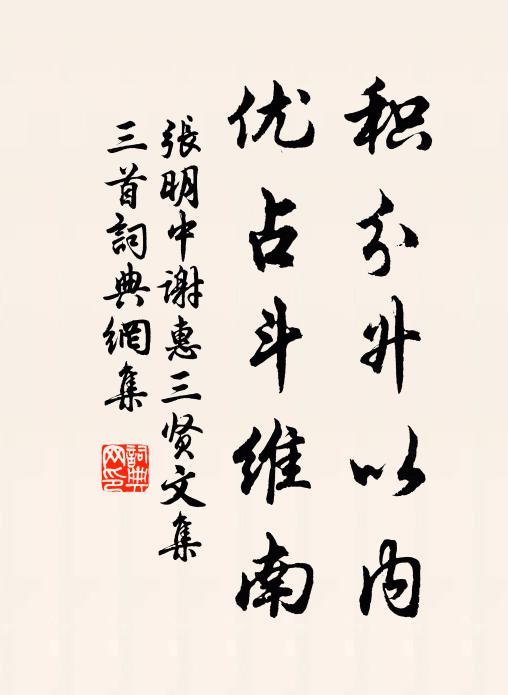 积分升以内
优占斗维南
張明中谢惠三贤文集
三首詞典網集
詞典网印